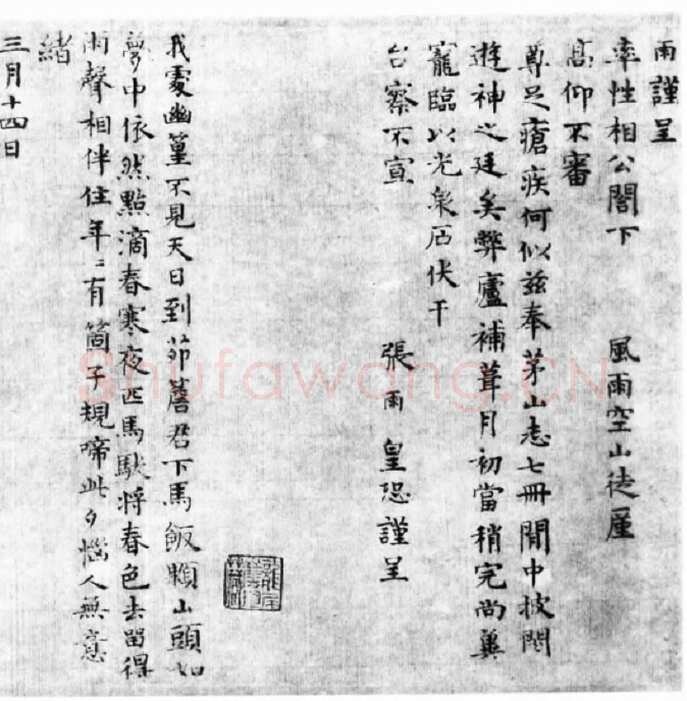 雨謹呈
率性相公閤下　風雨空山徒廑
高仰不審
尊足瘡疾何似茲奉茅山志七冊閒中披閱
遊神之廷矣弊廬補葺月初當稍完尚冀
寵臨以光泉石伏干
台察不宣　張雨皇恐謹呈
我憂幽篁不見天日到茆簷君下馬飯顆山頭如
夢中依然點滴春寒夜匹馬馱將春色去留得
雨聲相伴住年〻有箇子規啼此夕惱人無意
緒
三月十四日
Shufawang.CN